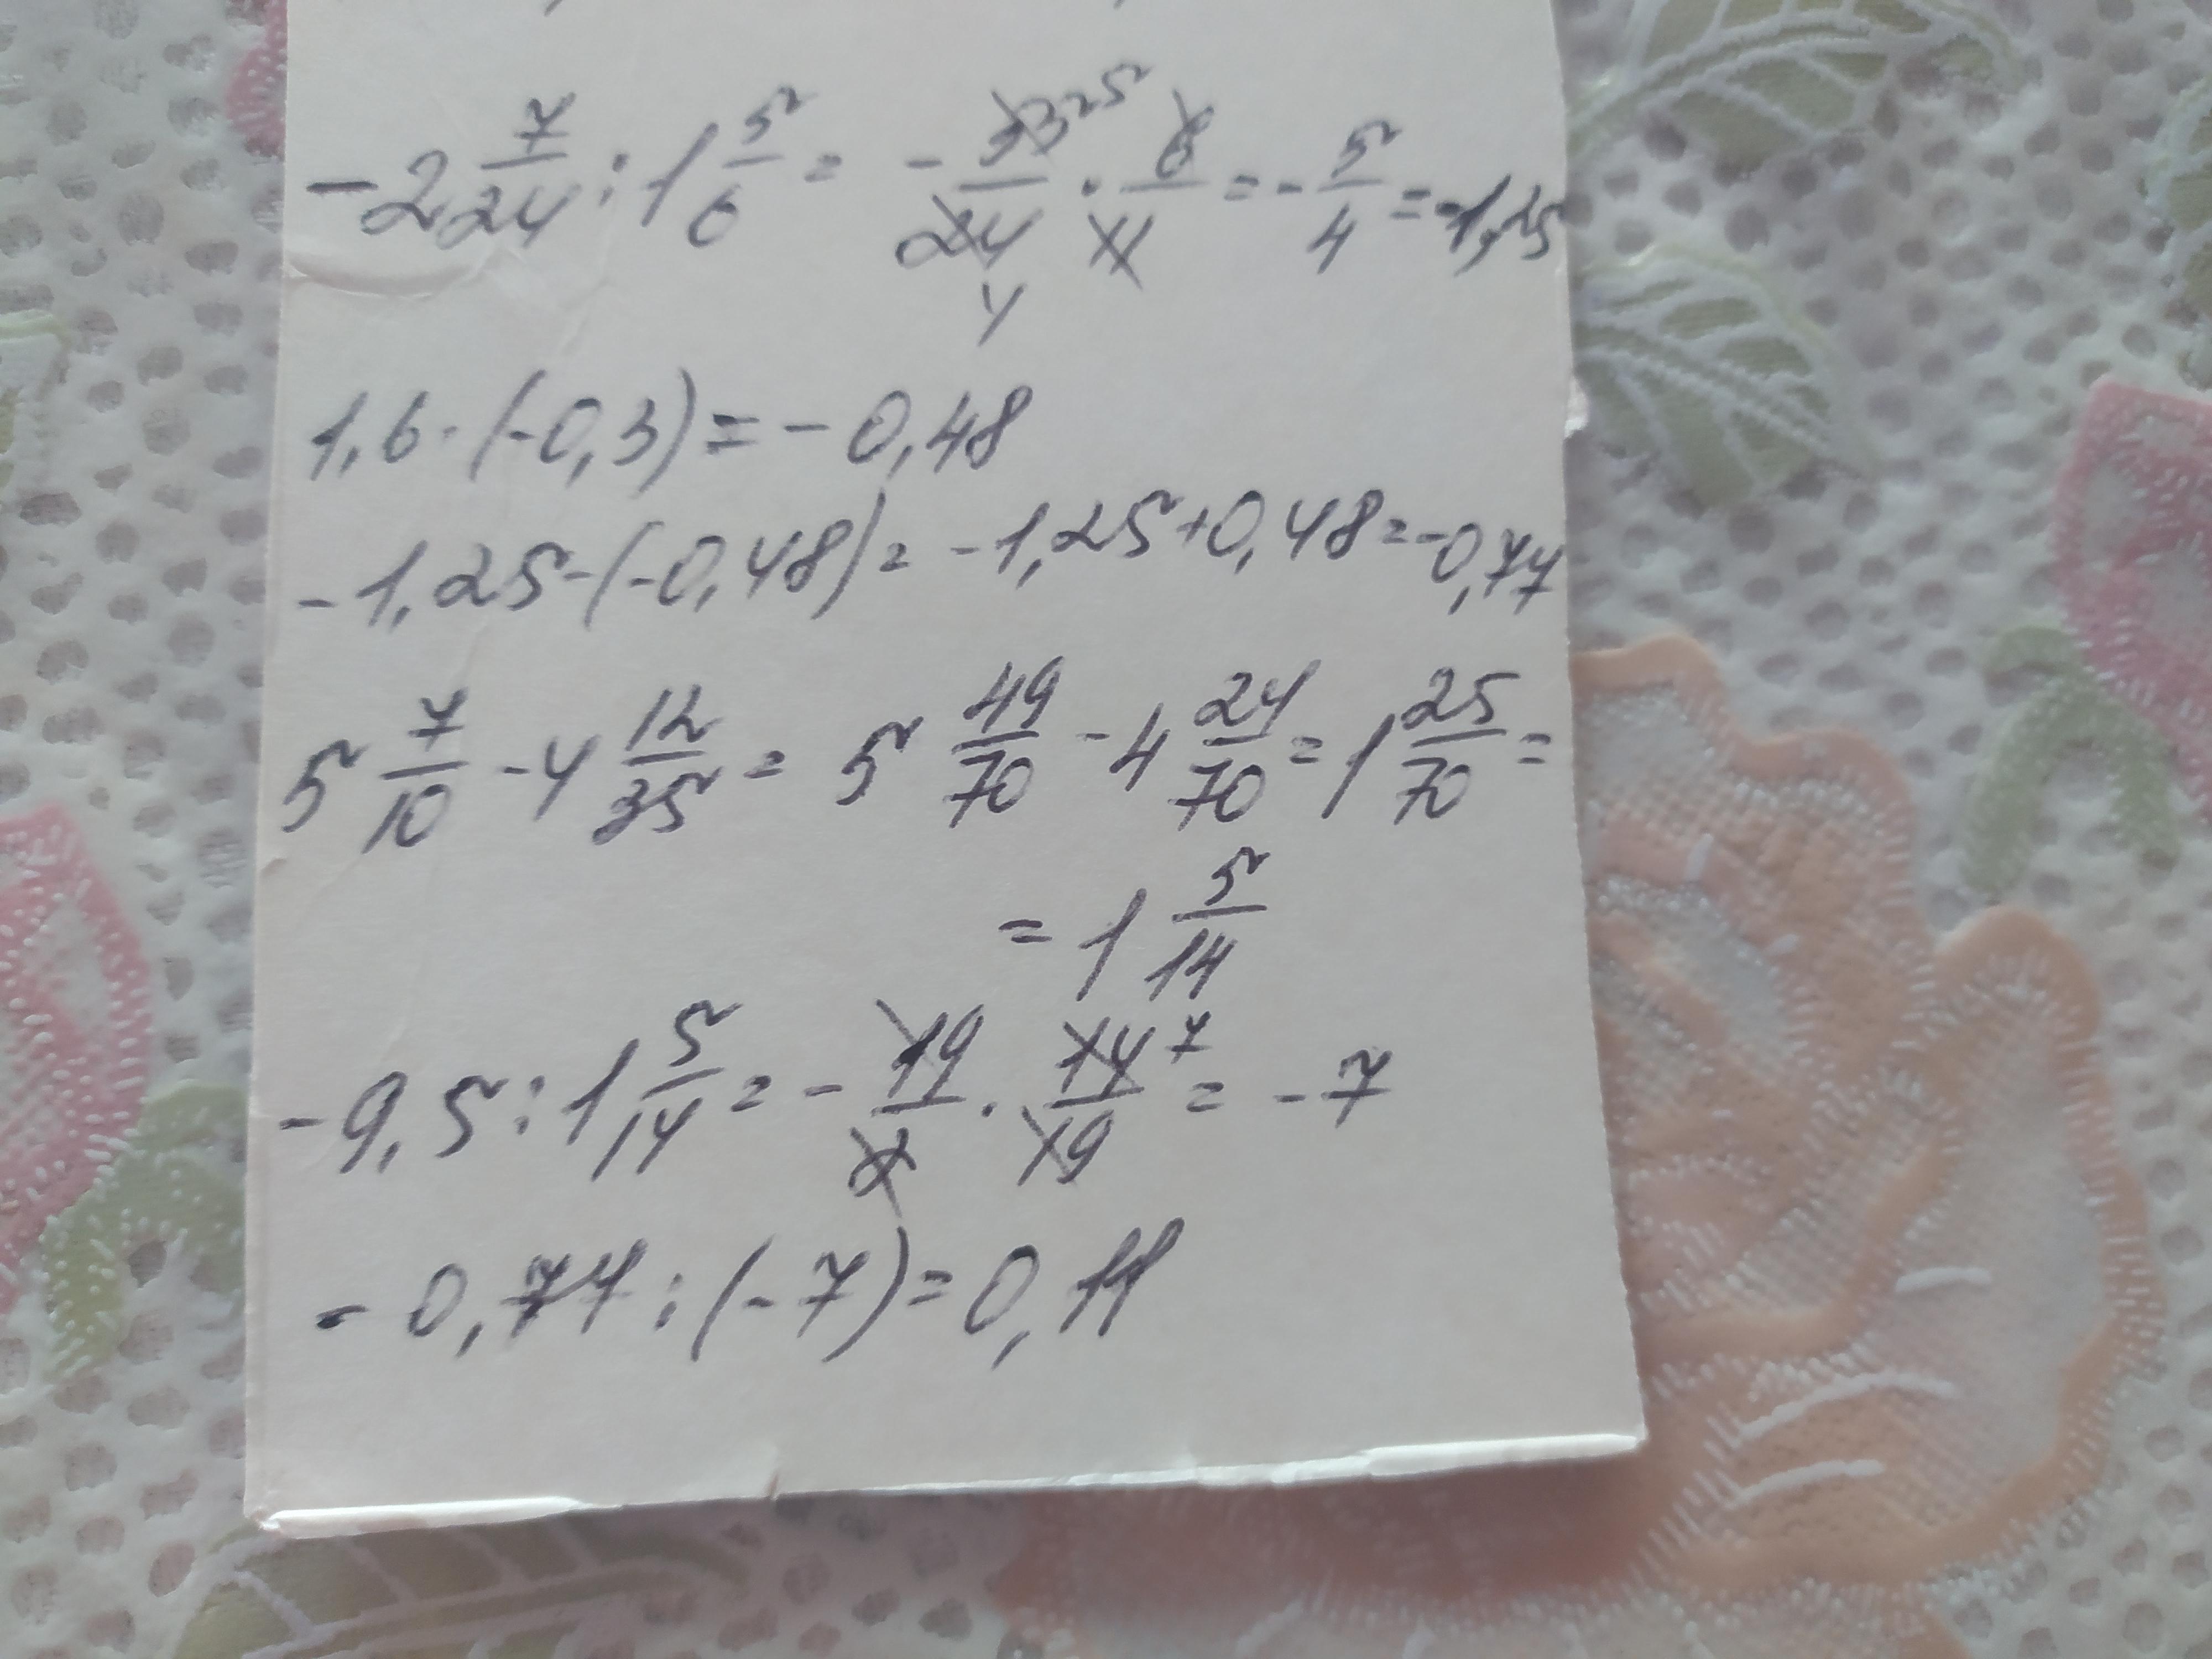 -2 7/24 : 1 5/6 = - 55 5/24 4 · 6/11 = - 5/4 = -1,25
1,6 · (-0,3) = - 0,48
- 1,25 - (-0,48) = - 1,25 + 0,48 = -0,77
5 7/10 - 4 12/35 = 5 49/70 - 4 24/70 = 1 25/70 =
= 1 5/14
- 9,5 : 1 5/14 = - 19/2 · 14 7/19 = - 7
- 0,77 : (- 7) = 0,11